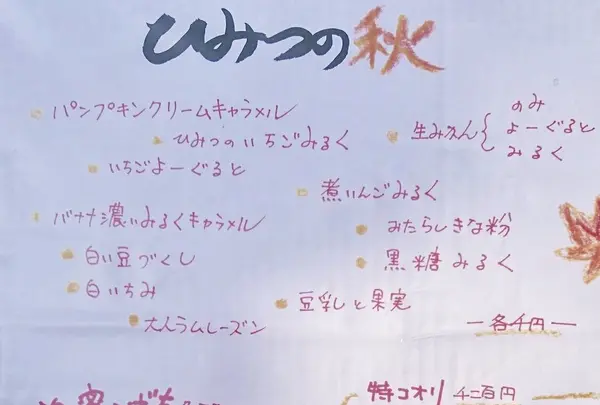 ひみつの秋
パンプキンクリームキャラメル
ひみつのいちごみるく
いちごよーぐると
生みかん{のみ
よーぐると
みるく
煮りんごみるく
バナナ濃いみるくキャラメル
みたらしきな粉
白い豆づくし
黒糖みるく
白いちみ
豆乳しと果実
大人ラムレーズン
―各千円―
特コオリ 千二百円